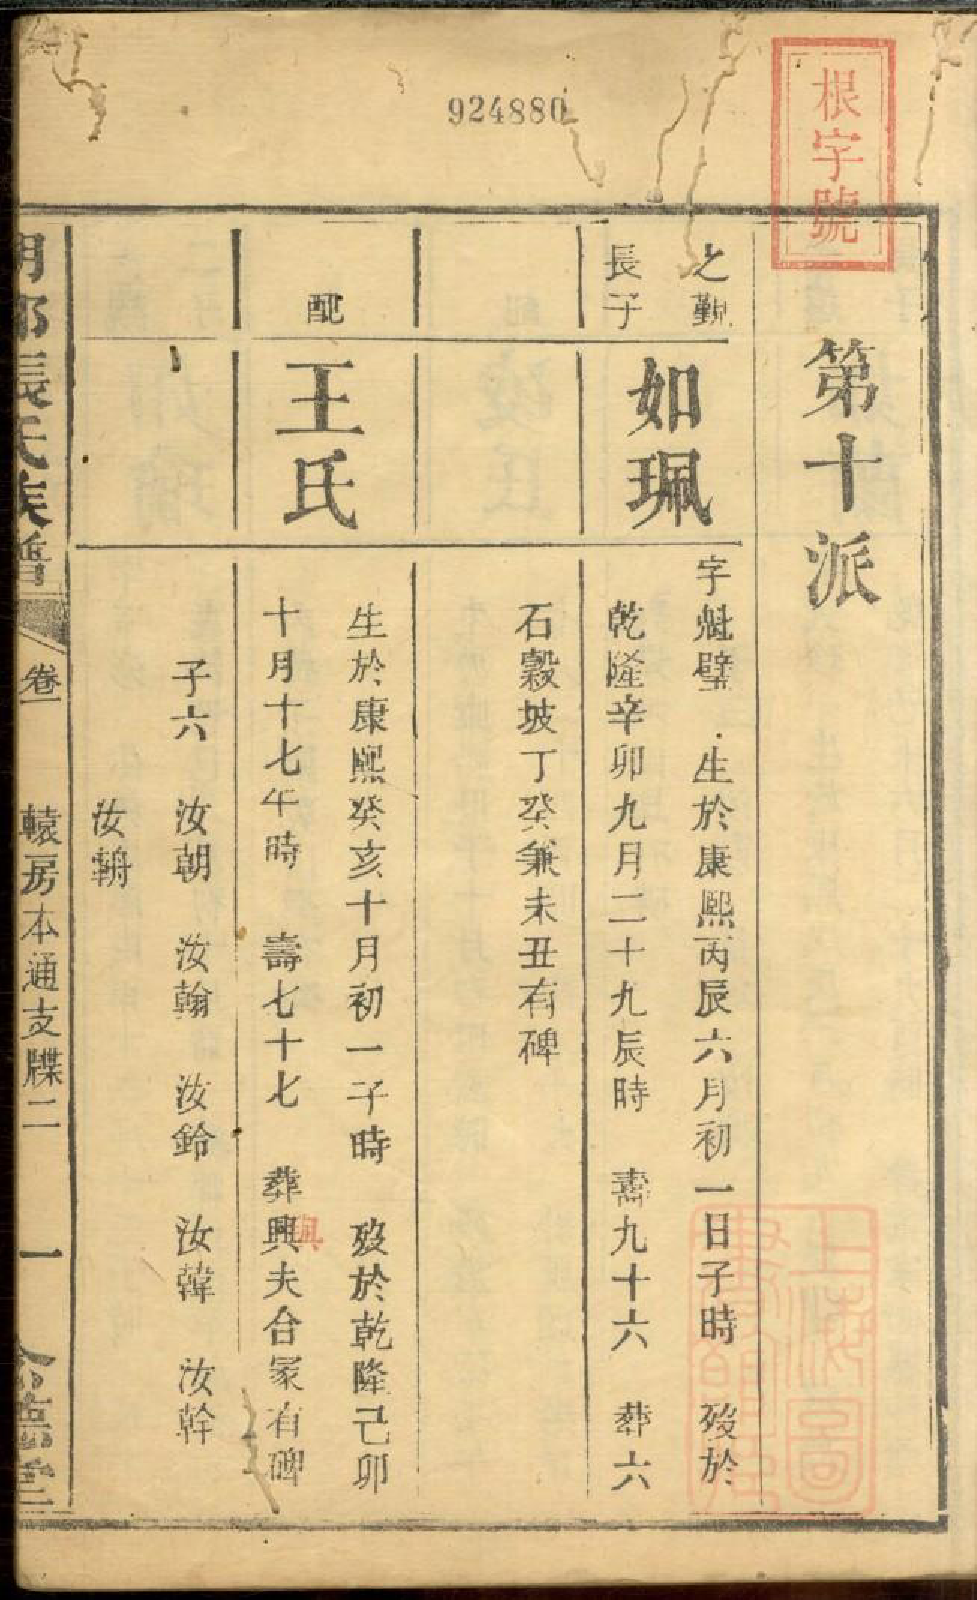 924880
根字號
第十派
之覲
長子
如珮
字魁璧 生於康熙丙辰六月初一日子時 歿於
乾隆辛卯九月二十九辰時 壽九十六 葬六
石穀坡丁癸兼未丑有碑
配
王氏
生於康熙癸亥十月初一子時 歿於乾隆己卯
十月十七午時 壽七十七 葬興夫合冢有碑
與
子六 汝朝 汝翰 汝鈴 汝韓 汝幹
汝鞘
張氏族譜
卷一
轅房本通支牒二
一
上海圖書館藏